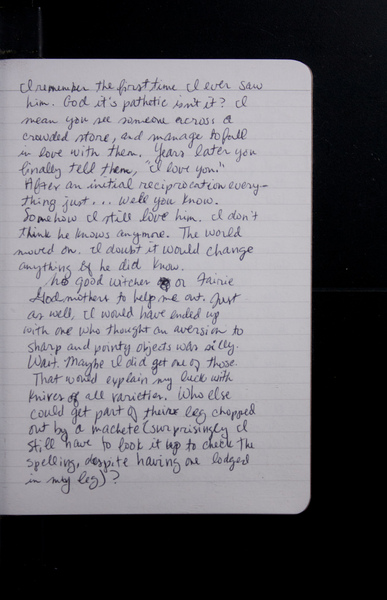 I remember the first time I ever saw
him. God it's pathetic isn't it? I
mean you see someone across a
crowded store, and manage to fall
in love with them. Years later you
finally tell them, "I love you."
After an initial reciprocation every-
thing just... well you know.
Somehow I still love him. I don't
think he knows anymore. The world
moved on. I doubt it would change
anything if he did know.
No good witches or Fairie
Godmothers to help me out. Just
as well, I would have ended up
with one who thought an aversion to
sharp and pointy objects was silly.
Wait. Maybe I did get one of those.
That would explain my luck with
knives of all varieties. Who else
could get part of their leg chopped
out by a machete (surprisingly I
still have to look it up to check the
spelling, despite having one lodged
in my leg)?